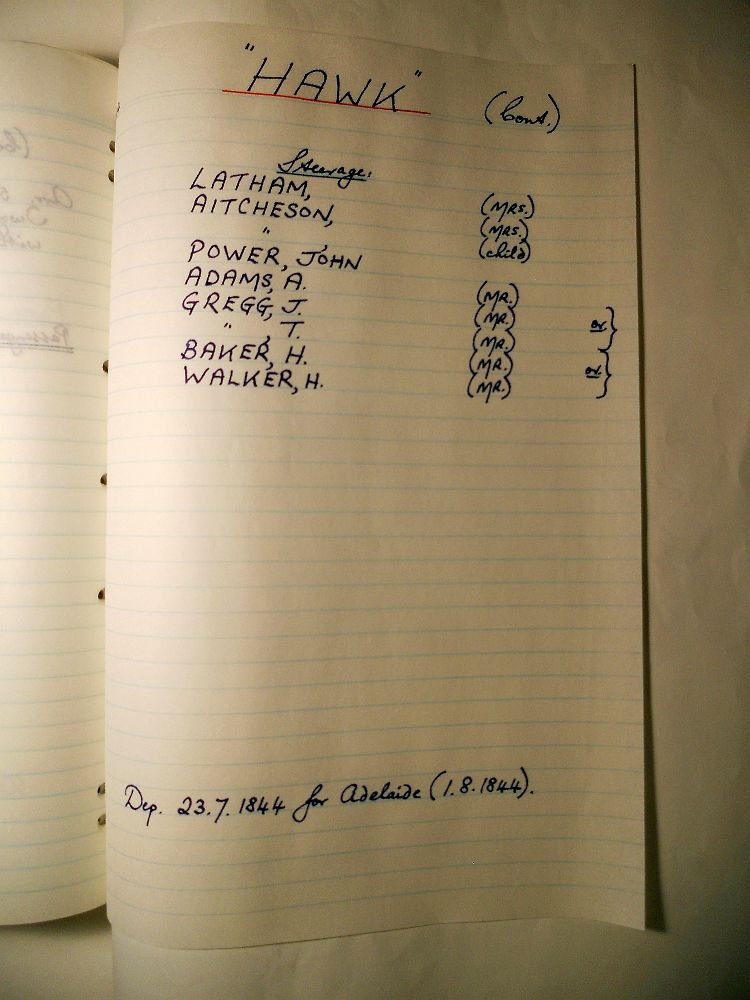 "HAWK" (Cont.)
Steerage:
LATHAM, (MRS.)
AITCHESON, (MRS.)
" (child)
POWER, JOHN
ADAMS, A. (MR.)
GREGG, J. (MR.)
" , T. (MR.) or
BAKER, H. (MR.)
WALKER, H. (MR.) or
Dep. 23.7.1844 for Adelaide (1.8.1844).